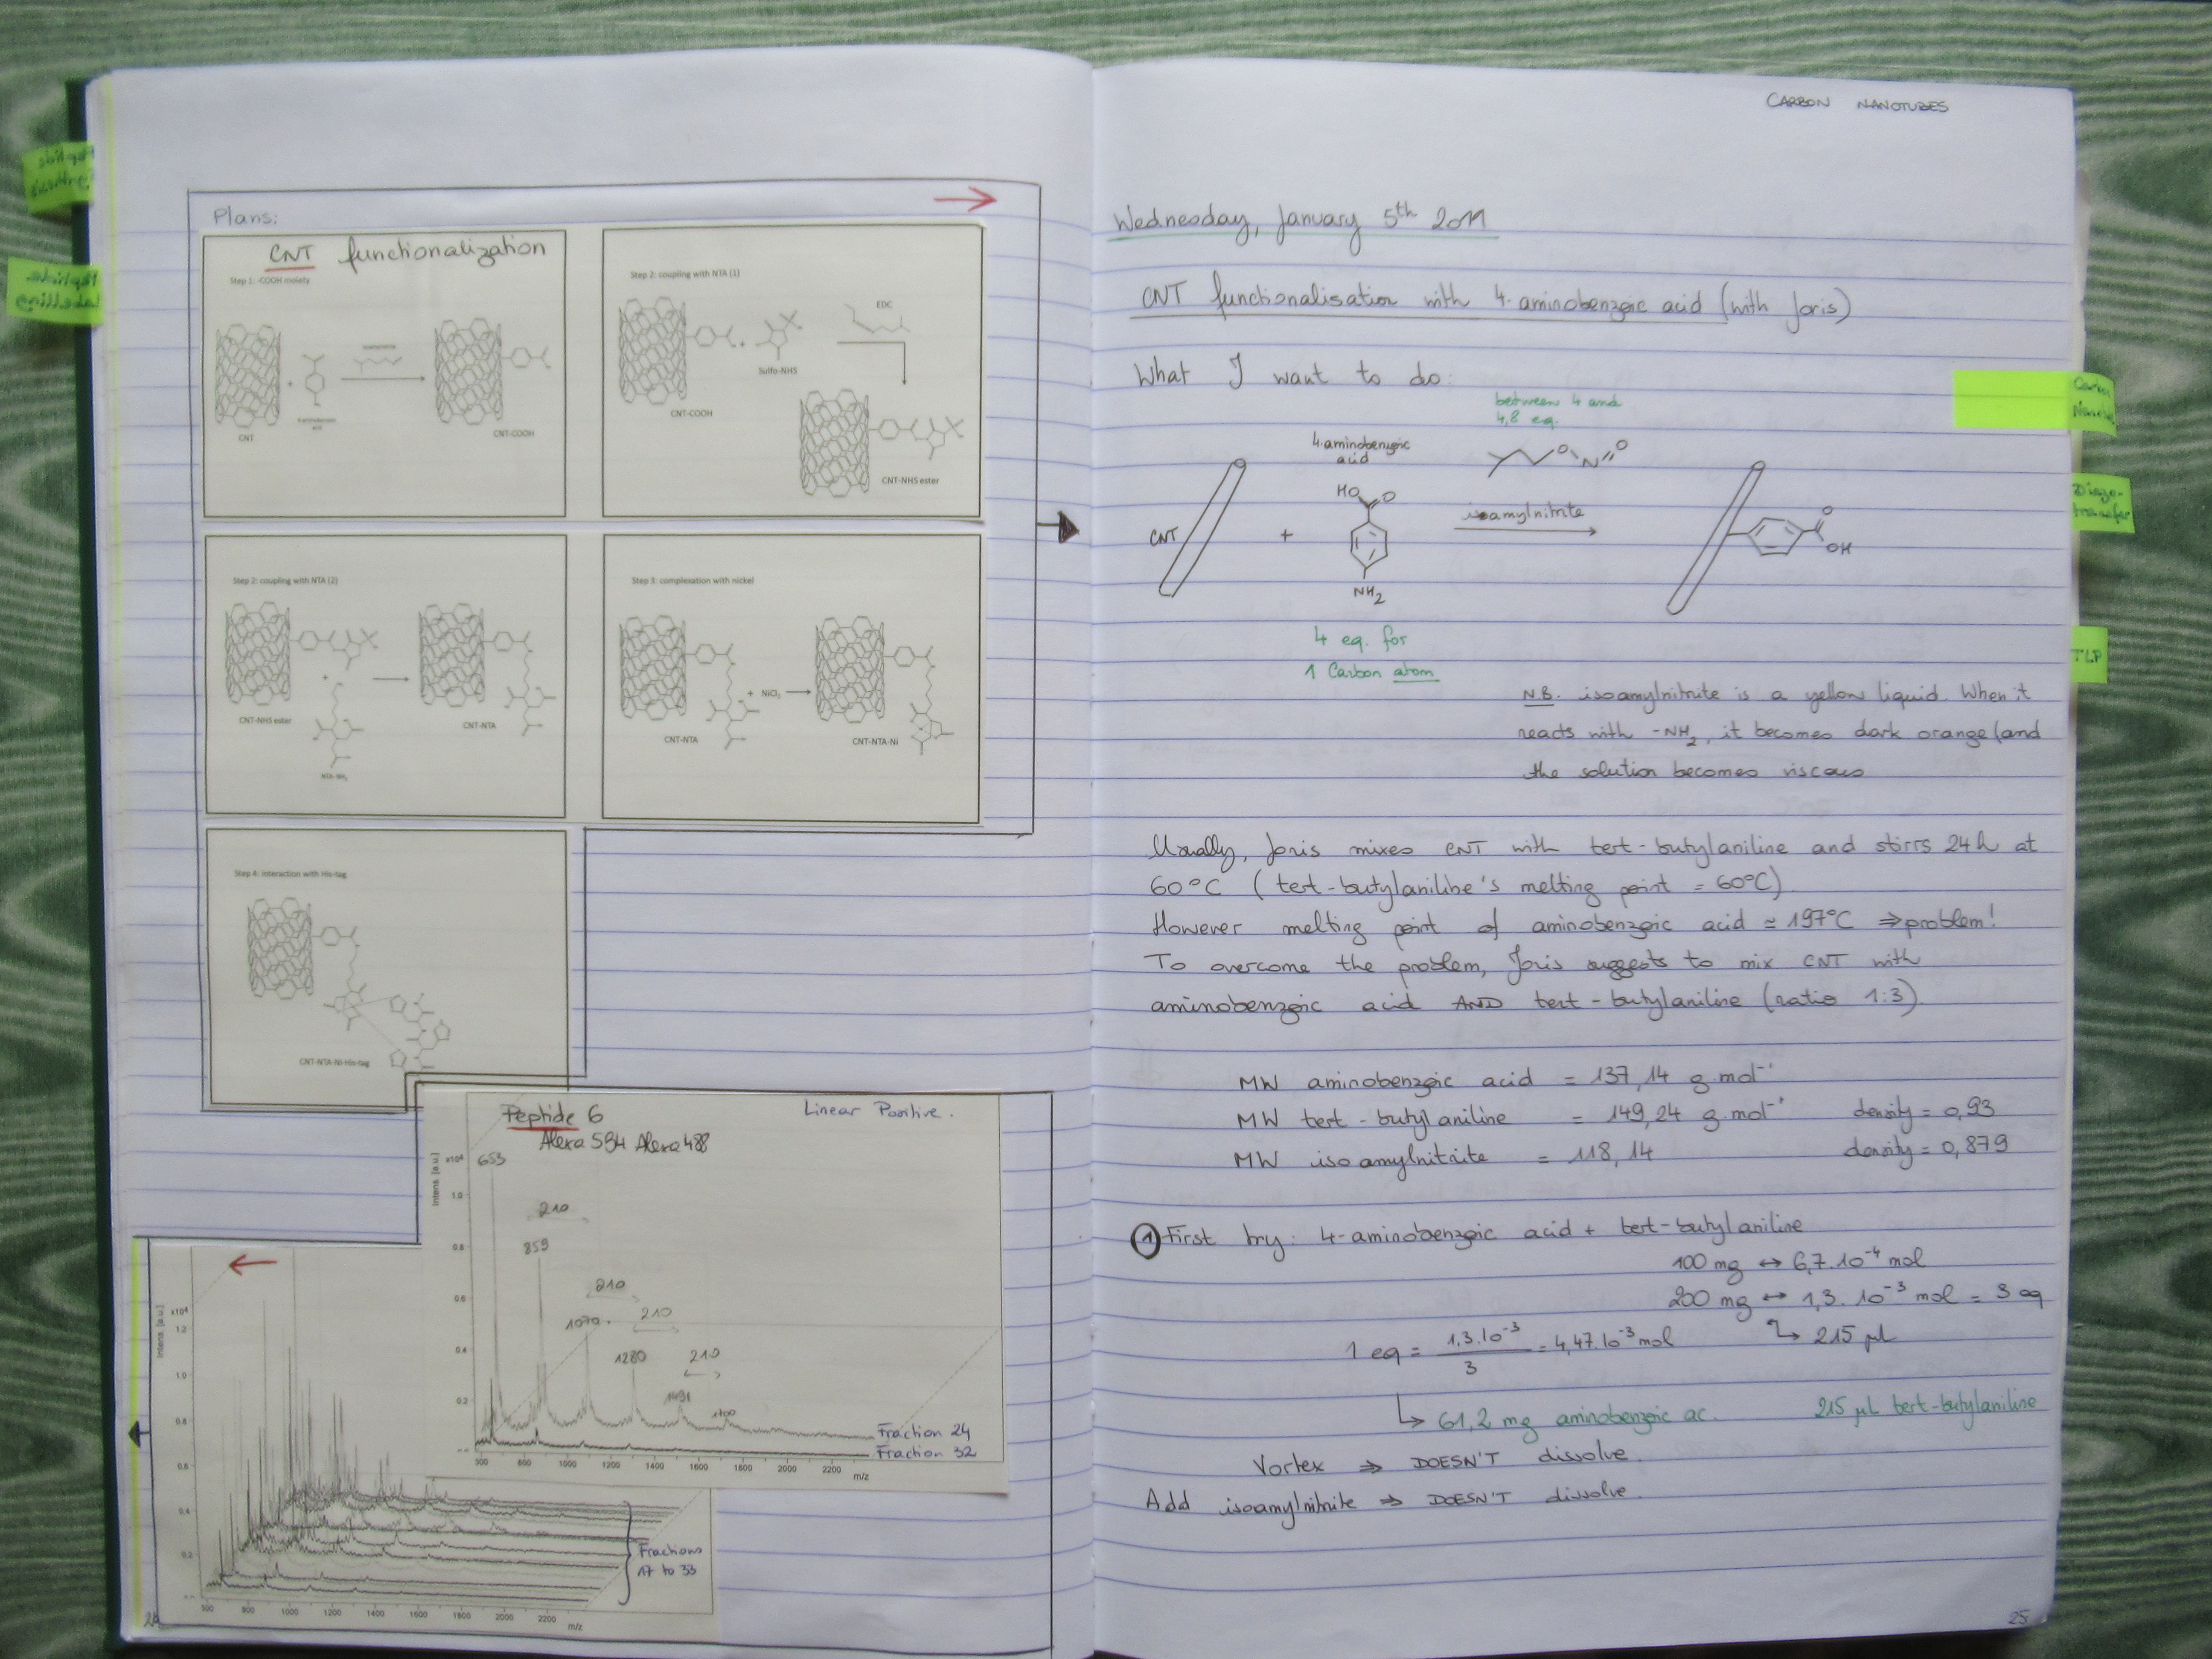 Plans:
CNT functionalization
Step 1: -COOH moiety
CNT
+
4-aminobenzoic
acid
CNT-COOH
Step 2: coupling with NTA (1)
EDC
+
Sulfo-NHS
CNT-COOH
CNT-NHS ester
Step 2: coupling with NTA (2)
+
CNT-NHS ester
NTA-NH₂
CNT-NTA
Step 3: complexation with nickel
+ NiCl₂
CNT-NTA
CNT-NTA-Ni
Step 4: interaction with His-tag
CNT-NTA-Ni-His-tag
Peptide 6
Linear Positive.
Alexa 594 Alexa 488
Intens. [a.u.]
x10⁴
1.0
0.8
0.6
0.4
0.2
653
210
859
210
1070
210
1280
210
1491
1700
Fraction 24
Fraction 32
800 1000 1200 1400 1600 1800 2000 2200
m/z
Intens. [a.u.]
x10⁴
1.2
1.0
0.8
0.6
0.4
0.2
Fractions
17 to 33
800 1000 1200 1400 1600 1800 2000 2200
m/z
Peptide
Synthesis
Peptide
Labelling
CARBON NANOTUBES
Wednesday, January 5th 2011
CNT functionalisation with 4-aminobenzoic acid (with Joris)
What I want to do:
between 4 and
4,8 eq.
4-aminobenzoic
acid
O N O
HO O
CNT
+
isoamylnitrite
O
OH
NH₂
4 eq. for
1 Carbon atom
N.B. isoamylnitrite is a yellow liquid. When it
reacts with -NH₂, it becomes dark orange (and
the solution becomes viscous
Usually, Joris mixes CNT with tert-butylaniline and stirrs 24h at
60°C (tert-butylaniline's melting point = 60°C).
However melting point of aminobenzoic acid = 197°C ⇒ problem!
To overcome the problem, Joris suggests to mix CNT with
aminobenzoic acid AND tert-butylaniline (ratio 1:3).
MW aminobenzoic acid = 137,14 g.mol⁻¹
MW tert-butylaniline = 149,24 g.mol⁻¹ density = 0,93
MW isoamylnitrite = 118,14 density = 0,879
① First try: 4-aminobenzoic acid + tert-butylaniline
100 mg ↔ 6,7.10⁻⁴ mol
200 mg ↔ 1,3.10⁻³ mol = 3 eq
1 eq = 1,3.10⁻³ / 3 = 4,47.10⁻³ mol ↳ 215 µl
↳ 61,2 mg aminobenzoic ac. 215 µL tert-butylaniline
Vortex ⇒ DOESN'T dissolve.
Add isoamylnitrite ⇒ DOESN'T dissolve.
25
Carbon
Diazo-
transfer
TLP